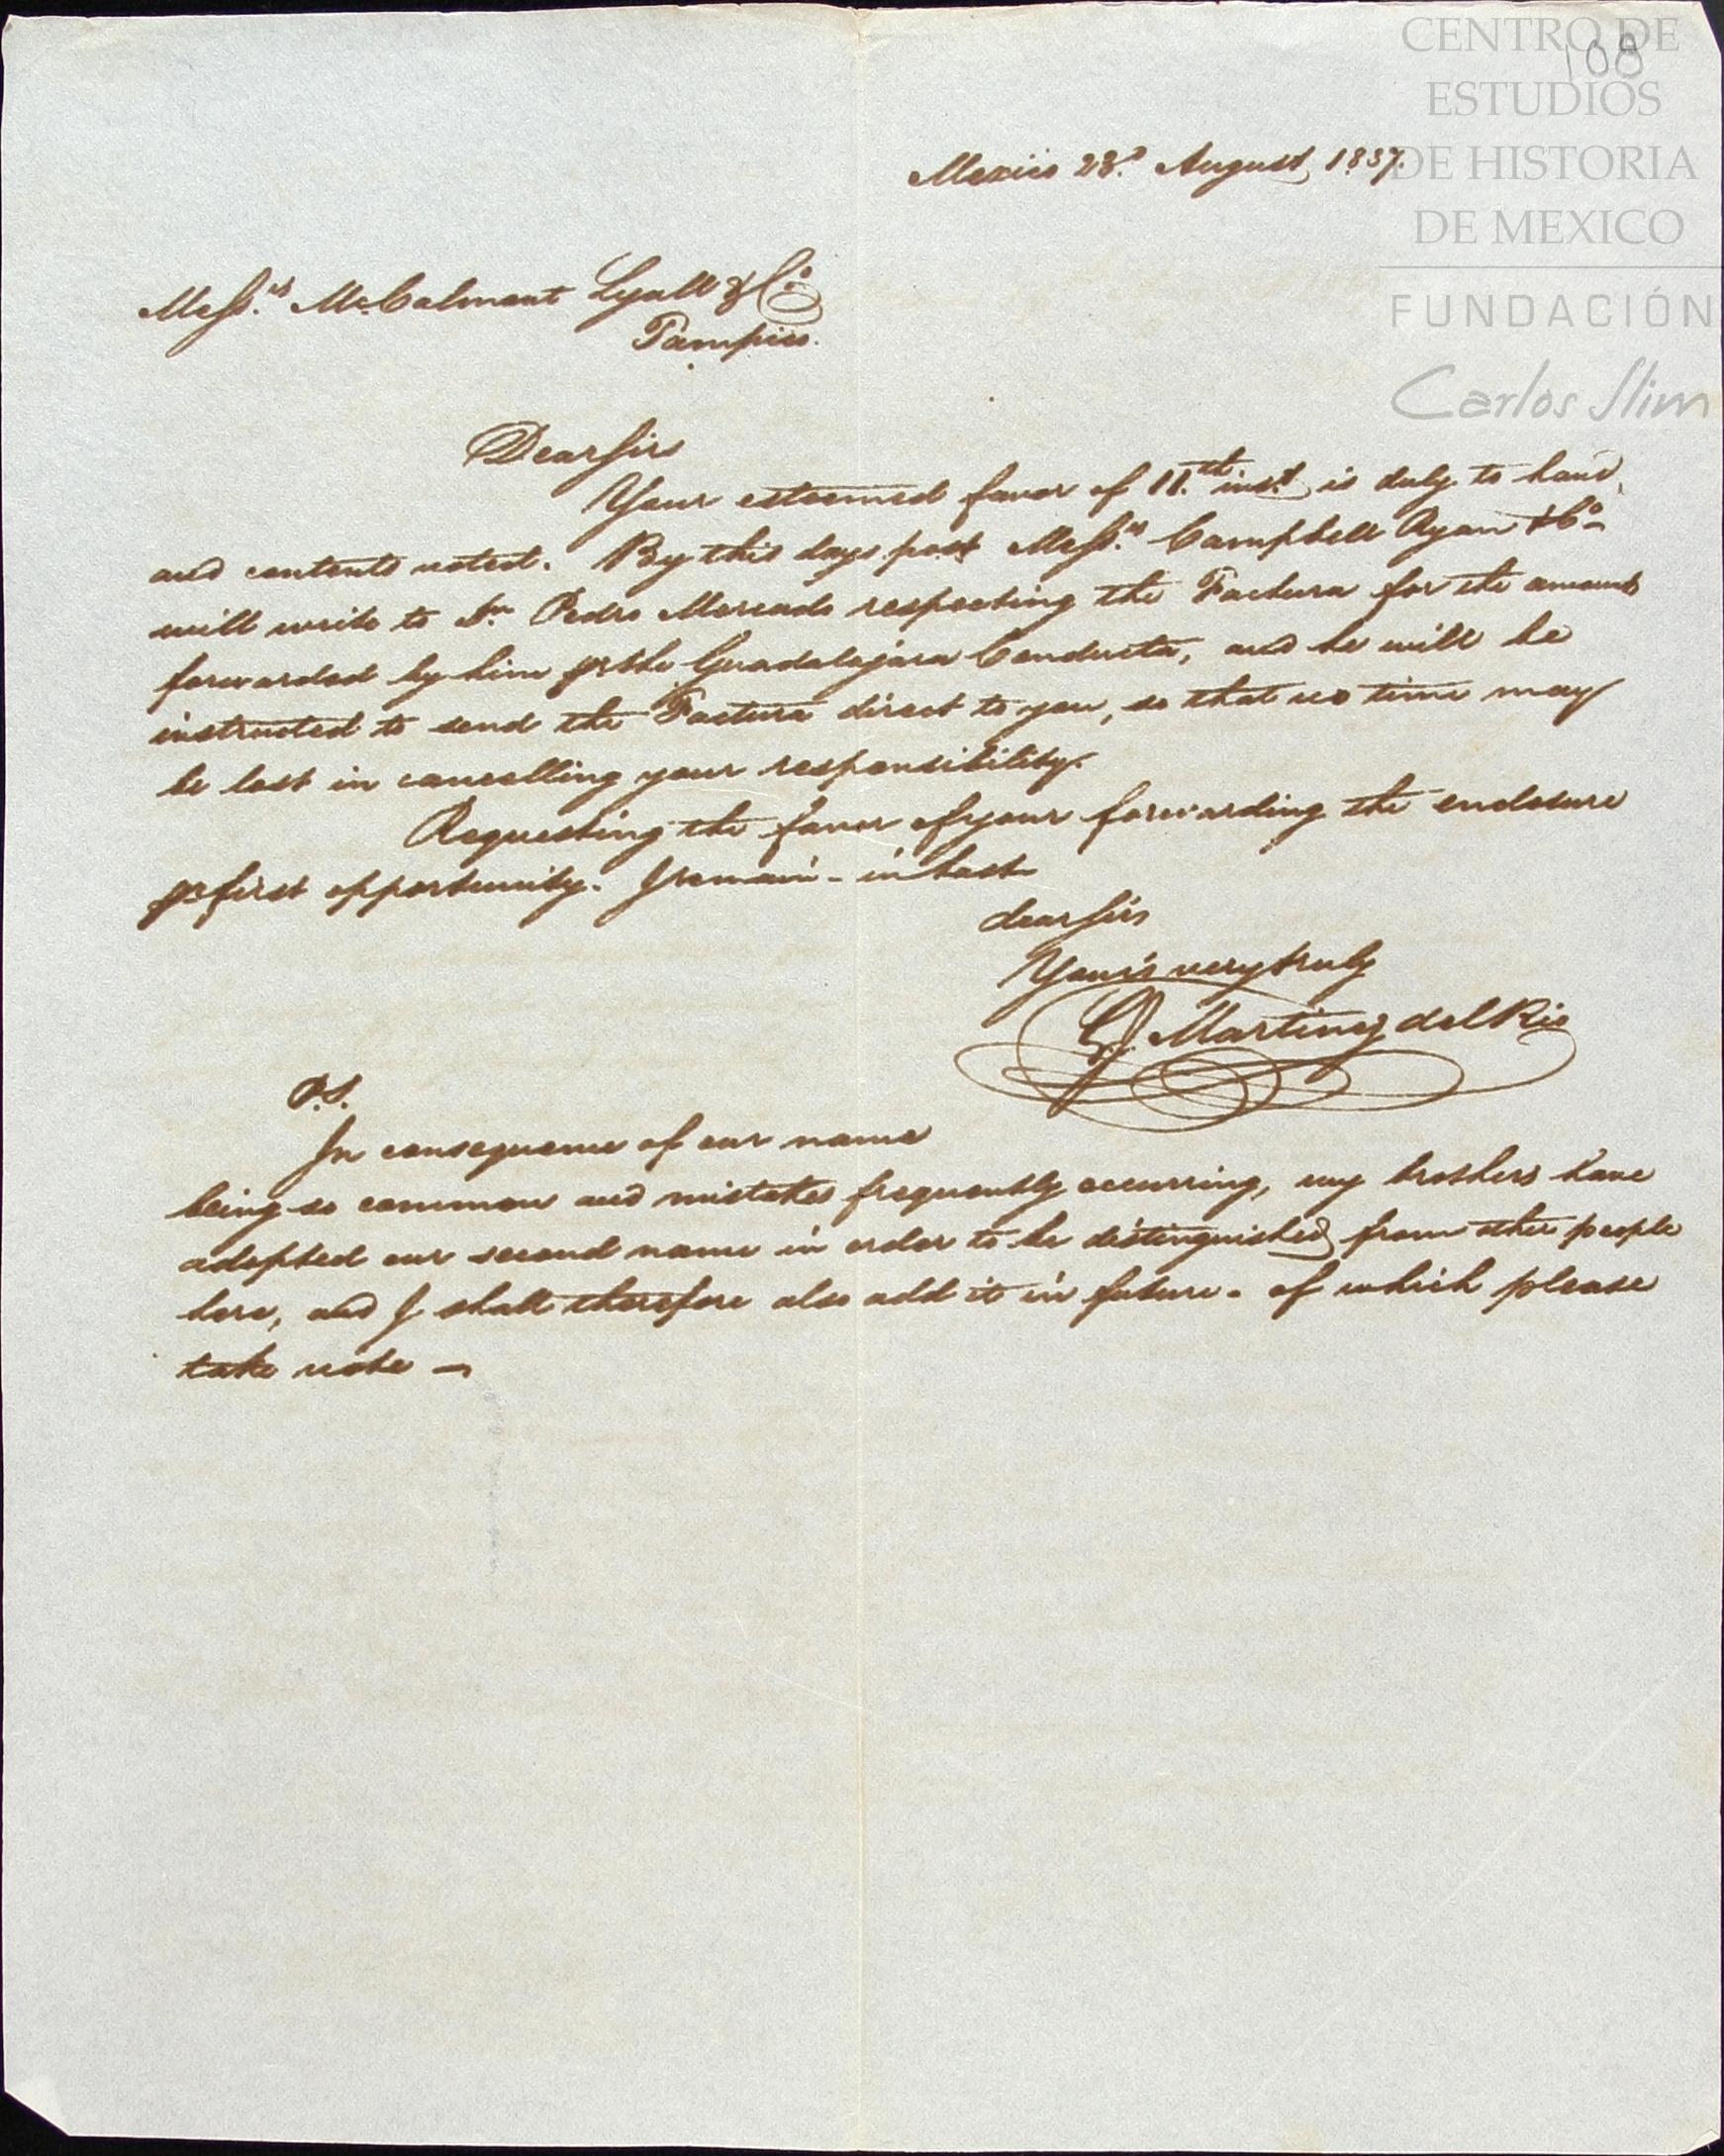 CENTRO DE
108
ESTUDIOS
DE HISTORIA
DE MEXICO
FUNDACIÓN
Carlos Slim
Mexico 28.. August 1837.
Mess.rs McCalmont Lyall & Co
Tampico.
Dear Sirs
Your esteemed favor of 11.th inst. is duly to hand
and contents noted. By this days post Mess.rs Campbell Ryan & Co
will write to Dn Pedro Mercado respecting the Factura for the amount
forwarded by him pr the Guadalajara Conducta, and he will be
instructed to send the Factura direct to you, so that no time may
be lost in cancelling your responsibility.
Requesting the favor of your forwarding the enclosure
pr first opportunity. I remain - in hast
dear Sirs
Yours very truly
G Martinez del Rio
P.S.
In consequence of our name
being so common and mistakes frequently occurring, my brothers have
adopted our second name in order to be distinguished from other people
here, and I shall therefore also add it in future - of which please
take note -